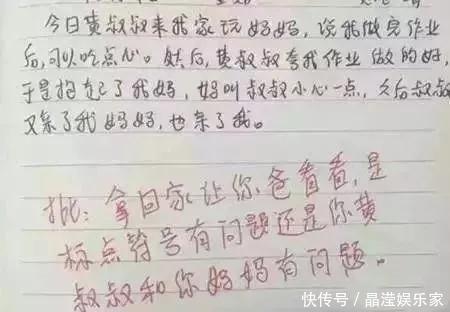 今日黄叔叔来我家玩妈妈,说我做完作业
后,可以吃点心。然后,黄叔叔夸我作业做的好,
于是抱起了我妈,妈叫叔叔小心一点,之后叔叔
又亲了我妈妈,也亲了我。
批:拿回家让你爸看看,是
标点符号有问题还是你黄
叔叔和你妈妈有问题。
快传号/晶滢娱乐家